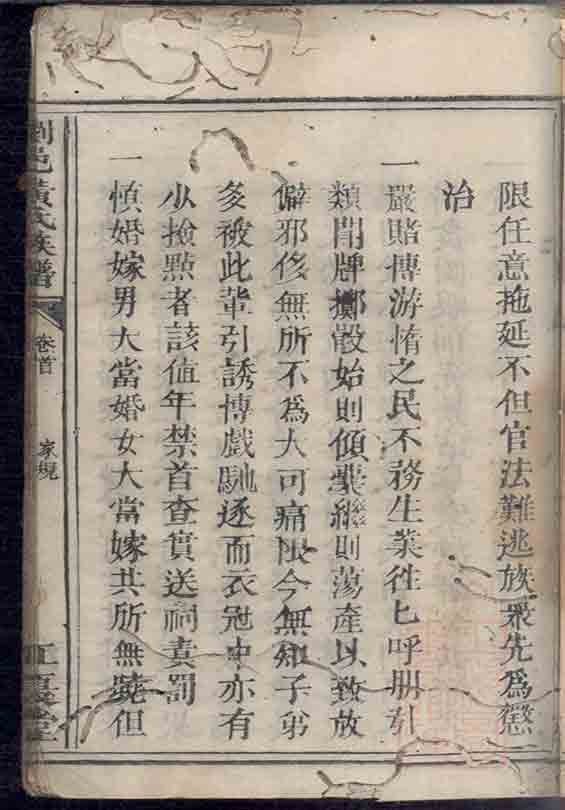 限任意拖延不但官法難逃族衆先為懲
治
一嚴賭博游惰之民不務生業徃匕呼朋引
類鬥牌擲骰始則傾囊繼則蕩產以致放
僻邪侈無所不為大可痛恨今無知子弟
多被此輩引誘博戲馳逐而衣冠中亦有
少撿點者該值年禁首查實送祠責罰
一慎婚嫁男大當婚女大當嫁共所無説但
瀏邑黃氏族譜
卷首
家規
江夏堂